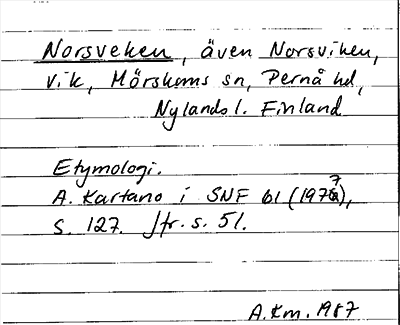 Norsveken, även Norsviken,
vik, Mörskoms sn, Pernå hd,
Nylands l. Finland
Etymologi.
A. Kartano i SNF 61 (1977),
s. 127. Jfr. s. 51.
A.Km. 1987